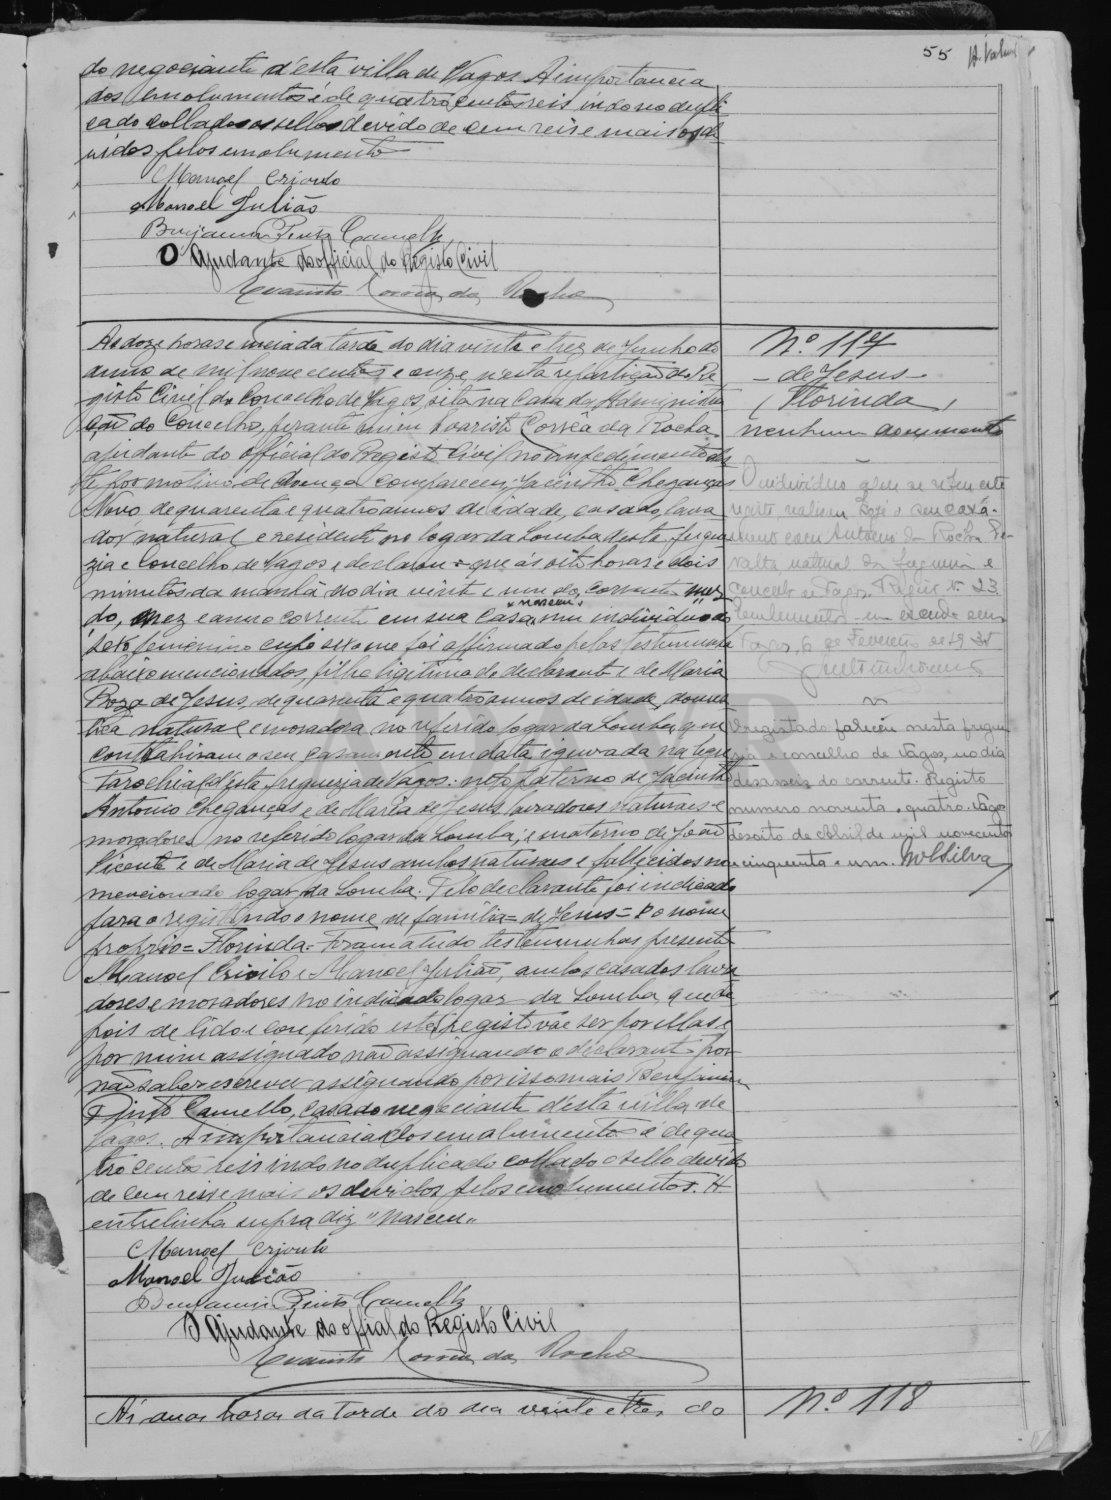 55
do negociante d'esta villa de Vagos A importancia
dos emolumentos é de quatrocentos reis indo no dupli
cado collado o sello devido de cem reis e mais os de
vidos pelos emolumentos
Manoel
Manoel Julião
Benjamin Pinto Camello
O Ajudante do official do Registo Civil
Evaristo Corrêa da Rocha
As doze horas e meia da tarde do dia vinte e trez de Junho do
anno de mil nove centos e onze, n'esta repartição do Re
gisto Civil do Concelho de Vagos, sita na Casa da Administra
ção do Concelho, perante mim Evaristo Corrêa da Rocha
ajudante do official do Registo Civil no impedimento des
te por motivo de doença compareceu: Jacintho Chegançus
Novo, de quarenta e quatro annos de idade, casado, lavra
dor, natural e residente no logar da Lomba desta fregue
zia e Concelho de Vagos, e declarou: que ás oito horas e dois
minutos da manhã no dia vinte e um do corrente mez
do, mez e anno corrente em sua casa um individuo do
nasceu
sexo femenino cujo sexo me foi affirmado pelas testemunhas
abaixo mencionadas, filha ligitima do declarante e de Maria
Roza de Jesus, de quarenta e quatro annos de idade, domes
tica natural e moradora no referido logar da Lomba, que
contrahiram o seu casamento em data ignorada na Egreja
Parochial d'esta freguezia de Vagos: neto paterno de Jacintho
Antonio Chegançus e de Maria de Jesus, lavradores naturaes e
moradores no referido logar da Lomba; e materno de João
Vicente e de Maria de Jesus ambos naturaes e fallecidos no
mencionado logar da Lomba. Pelo declarante foi indicado
para o registando o nome de familia = de Jesus = e o nome
proprio = Florinda = Foram a tudo testemunhas presentes
Manoel e Manoel Julião, ambos casados lavra
dores e moradores no indicado logar da Lomba, que de
pois de lido e conferido este Registo vae ser por ellas e
por mim assignado não assignando o declarante por
não saber escrever assignando por isso mais Benjamin
Pinto Camello, casado negociante d'esta villa de
Vagos. A importancia dos emolumentos é de qua
tro centos reis indo no duplicado collado o sello devido
de cem reis e mais os devidos pelos emolumentos. A
entrelinha supra diz "nasceu"
Manoel
Manoel Julião
Benjamin Pinto Camello
O Ajudante do official do Registo Civil
Evaristo Corrêa da Rocha
As duas horas da tarde do dia vinte e tres do
Nº 117
- de Jesus -
Florinda
nenhum documento
O individuo a que se refere este
registo, realisou hoje o seu casa-
mento com Antonio da Rocha
natural da e
concelho de Vagos. Registo Nº 23.
em
Vagos, 6 de Fevereiro de 19
O registado faleceu nesta fregue
sia e concelho de Vagos, no dia
dezasseis do corrente. Registo
numero noventa e quatro. Vagos
dezoito de Abril de mil novecentos
e cinquenta e um. Silva
Nº 118